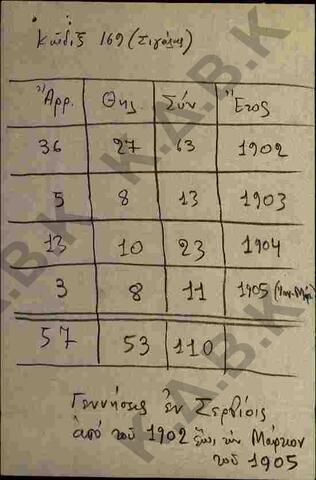 Κώδιξ 169 (Σιγάλας)
Ἄρρ. Θης Σύν Ἔτος
36 27 63 1902
5 8 13 1903
13 10 23 1904
3 8 11 1905 (Ἰαν-Μάρ.)
57 53 110
Γεννήσεις ἐν Σερβίοις
ἀπό τοῦ 1902 ἕως τὸν Μάρτιον
τοῦ 1905
Κ.Δ.Β.Κ
Κ.Δ.Β.Κ
Κ.Δ.Β.Κ